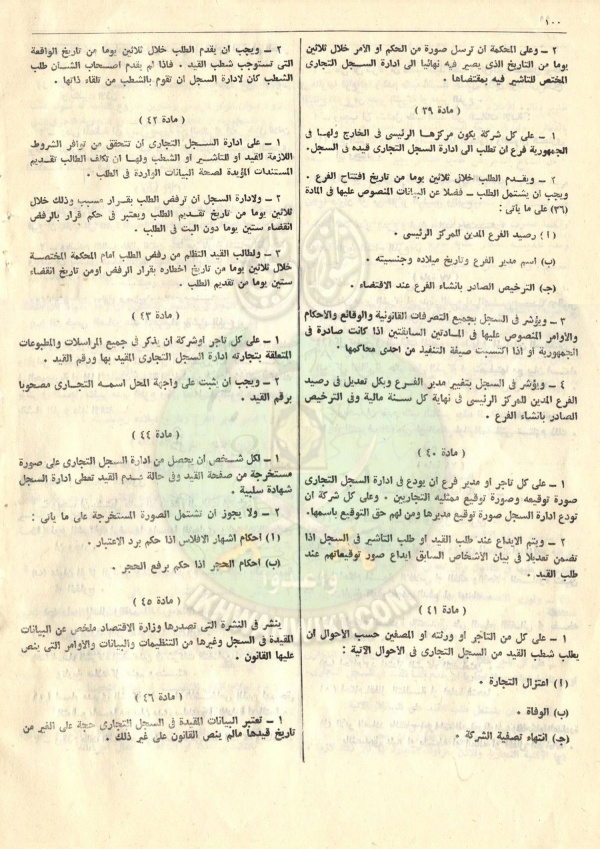 ١٠٠
٢ – وعلى المحكمة ان ترسل صورة من الحكم او الأمر خلال ثلاثين
يوما من التاريخ الذى يصير فيه نهائيا الى ادارة السجل التجارى
المختص للتأشير فيه بمقتضاها .
( مادة ٣٩ )
١ – على كل شركة يكون مركزها الرئيسى فى الخارج ولها فى
الجمهورية فرع ان تطلب الى ادارة السجل التجارى قيده فى السجل.
٢ – ويقدم الطلب خلال ثلاثين يوما من تاريخ افتتاح الفرع .
ويجب ان يشتمل الطلب – فضلا عن البيانات المنصوص عليها فى المادة
(٣٦) على ما يأتى :
( أ ) رصيد الفرع المدين للمركز الرئيسى .
(ب) اسم مدير الفرع وتاريخ ميلاده وجنسيته .
(ج) الترخيص الصادر بانشاء الفرع عند الاقتضاء .
٣ – ويؤشر فى السجل بجميع التصرفات القانونية والوقائع والأحكام
والأوامر المنصوص عليها فى المادتين السابقتين اذا كانت صادرة فى
الجمهورية أو اذا اكتسبت صيغة التنفيذ من احدى محاكمها .
٤ – ويؤشر فى السجل بتغيير مدير الفرع وبكل تعديل فى رصيد
الفرع المدين للمركز الرئيسى فى نهاية كل سنة مالية وفى الترخيص
الصادر بانشاء الفرع .
( مادة ٤٠ )
١ – على كل تاجر او مدير فرع ان يودع فى ادارة السجل التجارى
صورة توقيعه وصورة توقيع ممثليه التجاريين . وعلى كل شركة ان
تودع ادارة السجل صورة توقيع مديرها ومن لهم حق التوقيع باسمها.
٢ – ويتم الايداع عند طلب القيد أو طلب التأشير فى السجل اذا
تضمن تعديلا فى بيان الأشخاص السابق ايداع صور توقيعاتهم عند
طلب القيد .
( مادة ٤١ )
١ – على كل من التاجر او ورثته او المصفين حسب الأحوال ان
يطلب شطب القيد من السجل التجارى فى الأحوال الآتية :
(أ) اعتزال التجارة .
(ب) الوفاة .
(ج) انتهاء تصفية الشركة .
٢ – ويجب ان يقدم الطلب خلال ثلاثين يوما من تاريخ الواقعة
التى تستوجب شطب القيد . فاذا لم يقدم اصحاب الشأن طلب
الشطب كان لادارة السجل ان تقوم بالشطب من تلقاء ذاتها .
( مادة ٤٢ )
١ – على ادارة السجل التجارى ان تتحقق من توافر الشروط
اللازمة للقيد أو للتأشير او الشطب ولها ان تكلف الطالب تقديم
المستندات المؤيدة لصحة البيانات الواردة فى الطلب .
٢ – ولادارة السجل ان ترفض الطلب بقرار مسبب وذلك خلال
ثلاثين يوما من تاريخ تقديم الطلب ويعتبر فى حكم قرار بالرفض
انقضاء ستين يوما دون البت فى الطلب .
٣ – ولطالب القيد التظلم من رفض الطلب امام المحكمة المختصة
خلال ثلاثين يوما من تاريخ اخطاره بقرار الرفض اومن تاريخ انقضاء
ستين يوما من تقديم الطلب .
( مادة ٤٣ )
١ – على كل تاجر اوشركة ان يذكر فى جميع المراسلات والمطبوعات
المتعلقة بتجارته ادارة السجل التجارى المقيد بها ورقم القيد .
٢ – ويجب ان يثبت على واجهة المحل اسمه التجارى مصحوبا
برقم القيد .
( مادة ٤٤ )
١ – لكل شخص ان يحصل من ادارة السجل التجارى على صورة
مستخرجة من صفحة القيد وفى حالة عدم القيد تعطى ادارة السجل
شهادة سلبية .
٢ – ولا يجوز ان تشتمل الصورة المستخرجة على ما يأتى :
(أ) احكام اشهار الافلاس اذا حكم برد الاعتبار .
(ب) احكام الحجر اذا حكم برفع الحجر .
( مادة ٤٥ )
ينشر فى النشرة التى تصدرها وزارة الاقتصاد ملخص عن البيانات
المقيدة فى السجل وغيرها من التنظيمات والبيانات والأوامر التى ينص
عليها القانون .
( مادة ٤٦ )
١ – تعتبر البيانات المقيدة فى السجل التجارى حجة على الغير من
تاريخ قيدها مالم ينص القانون على غير ذلك .
وأعدوا
IKHWANWIKI.COM